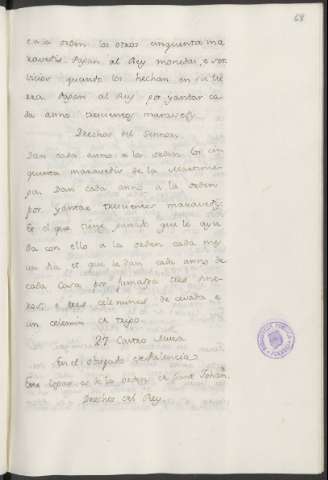 68
en la orden los otros cinquenta ma
ravedis. Pagan al Rey monedas, e ser
vicios quando los hechan en su tie
rra. Pagan al Rey por yantar ca
da anno trecientos maravedis.
Derechos del Sennor.
Dan cada anno a la orden los cin
quenta maravedis de la
pa. Dan cada anno a la orden
por yantar trecientos maravedis.
Et el que tiene ganado que le ayu
da con ello a la orden cada
un dia et que le dan cada anno de
cada casa por tres
e tres celemines de cevada e
un celemin de trigo.
27 Castro Muza
En el obispado de Palencia
Este logar es de la orden de Sant Johan.
Derechos del Rey.